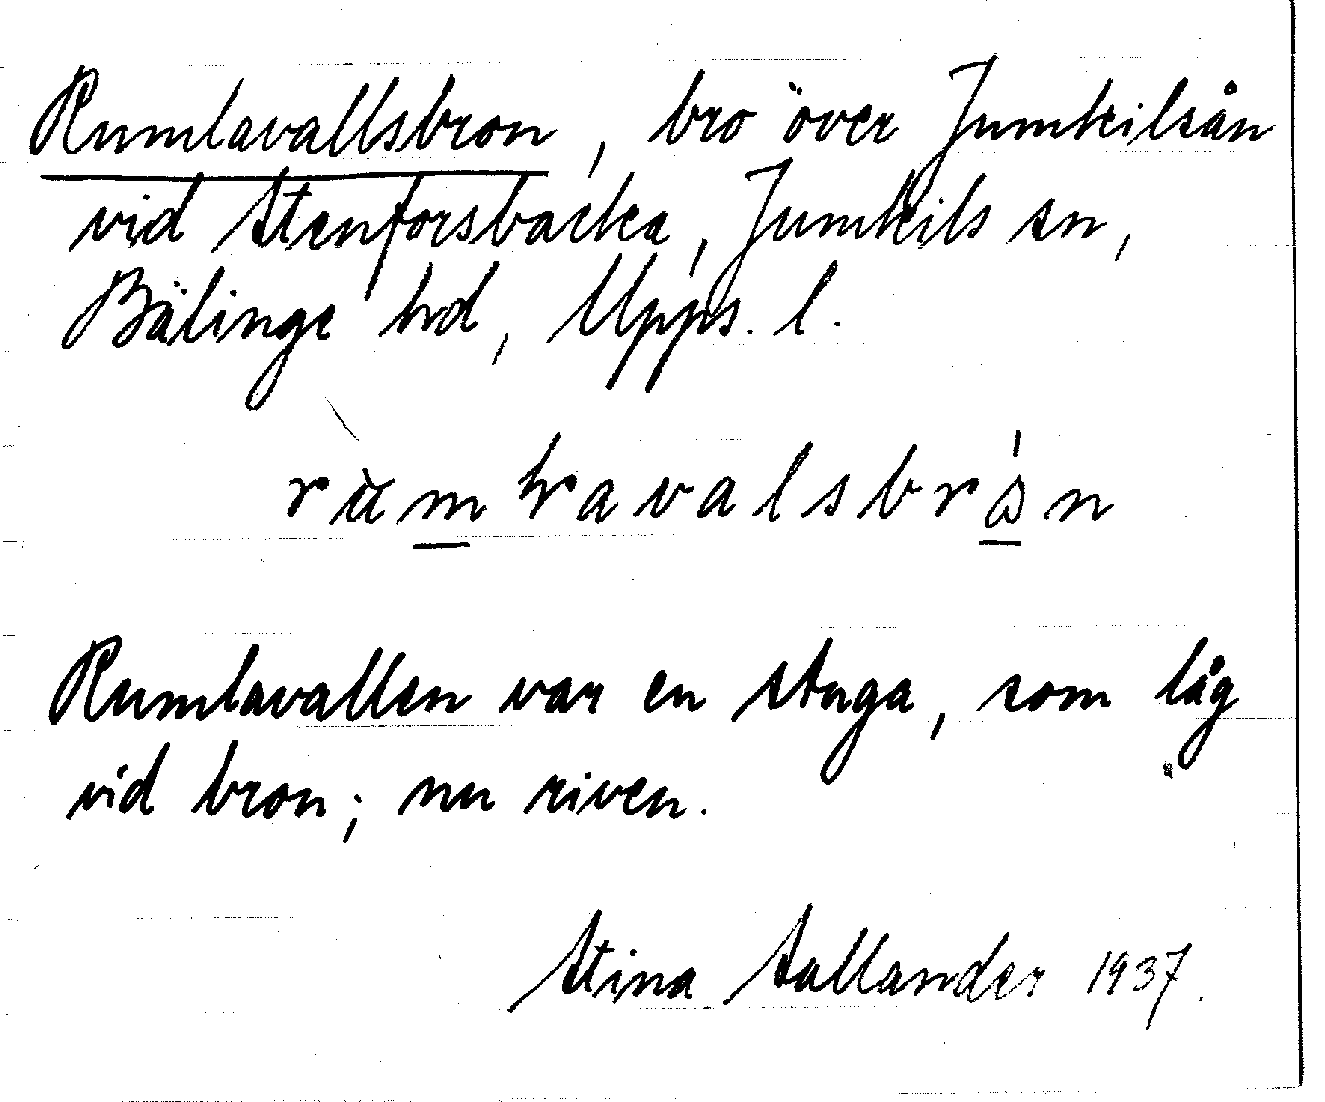 Rumlavallsbron, bro över Jumkilsån
vid Stenforsbacka, Jumkils sn,
Bälinge hd, Upps. l.
Rumlavallen var en stuga, som låg
vid bron; nu riven.
Stina Sallander 1937.